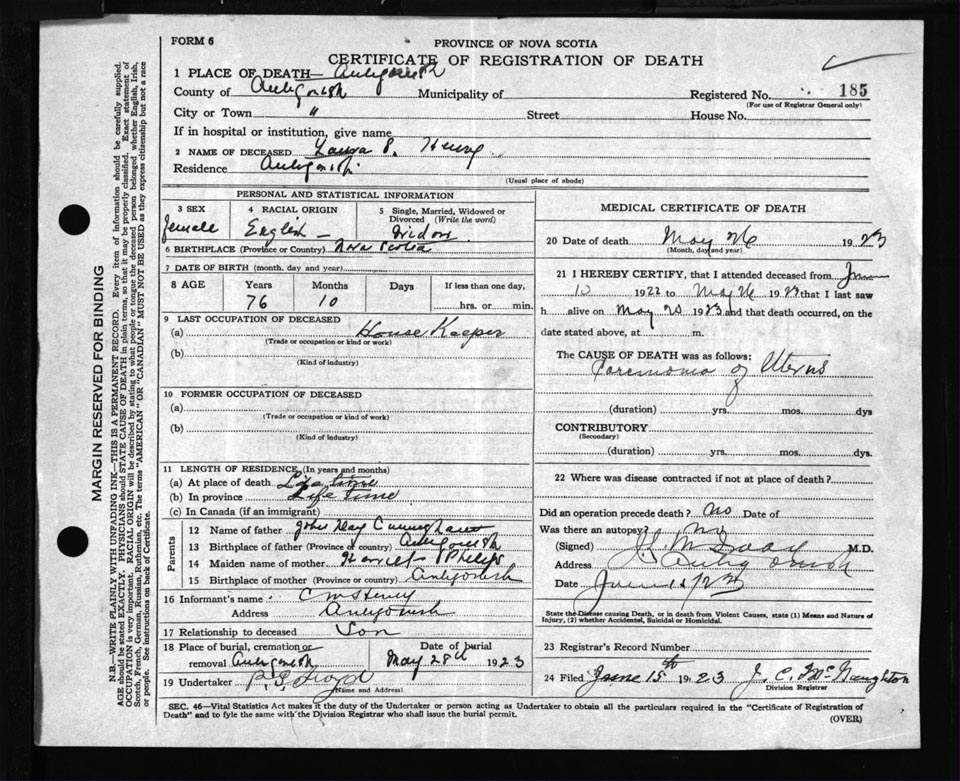 FORM 6
PROVINCE OF NOVA SCOTIA
CERTIFICATE OF REGISTRATION OF DEATH
1 PLACE OF DEATH— Antigonish
County of Antigonish Municipality of Registered No. 185
(For use of Registrar General only)
City or Town " Street House No.
If in hospital or institution, give name
2 NAME OF DECEASED Laura P. Henry
Residence Antigonish
(Usual place of abode)
PERSONAL AND STATISTICAL INFORMATION
3 SEX 4 RACIAL ORIGIN 5 Single, Married, Widowed or Divorced (Write the word)
female English Widow
6 BIRTHPLACE (Province or Country) Nova Scotia
7 DATE OF BIRTH (month, day and year)
8 AGE Years Months Days If less than one day,
76 10 hrs. or min.
9 LAST OCCUPATION OF DECEASED
(a) House Keeper
(Trade or occupation or kind of work)
(b)
(Kind of industry)
10 FORMER OCCUPATION OF DECEASED
(a)
(Trade or occupation or kind of work)
(b)
(Kind of industry)
11 LENGTH OF RESIDENCE (In years and months)
(a) At place of death Life time
(b) In province Life Time
(c) In Canada (if an immigrant)
Parents
12 Name of father John Cunningham
13 Birthplace of father (Province or country) Antigonish
14 Maiden name of mother Harriet
15 Birthplace of mother (Province or country) Antigonish
16 Informant's name Henry
Address Antigonish
17 Relationship to deceased Son
18 Place of burial, cremation or removal Antigonish Date of burial May 28th 1923
19 Undertaker
Name and Address
MEDICAL CERTIFICATE OF DEATH
20 Date of death May 26 1923
(Month, day and year)
21 I HEREBY CERTIFY, that I attended deceased from
10 1922 to May 26 1923 that I last saw
h alive on May 20 1923 and that death occurred, on the
date stated above, at m.
The CAUSE OF DEATH was as follows:
Carcinoma of Uterus
(duration) yrs. mos. dys
CONTRIBUTORY
(Secondary)
(duration) yrs. mos. dys.
22 Where was disease contracted if not at place of death?
Did an operation precede death? no Date of
Was there an autopsy? no
(Signed) M.D.
Address Antigonish
Date June
State the Disease causing Death, or in death from Violent Causes, state (1) Means and Nature of
Injury, (2) whether Accidental, Suicidal or Homicidal.
23 Registrar's Record Number
24 Filed June 15th 1923 J. C. McNaughton
Division Registrar
SEC. 46—Vital Statistics Act makes it the duty of the Undertaker or person acting as Undertaker to obtain all the particulars required in the "Certificate of Registration of
Death" and to fyle the same with the Division Registrar who shall issue the burial permit.
(OVER)
MARGIN RESERVED FOR BINDING
N.B.—WRITE PLAINLY WITH UNFADING INK—THIS IS A PERMANENT RECORD. Every item of information should be carefully supplied.
AGE should be stated EXACTLY. PHYSICIANS should STATE CAUSE OF DEATH in plain terms, so that it may be properly classified. Exact statement of
OCCUPATION is very important. RACIAL ORIGIN will be described by stating to what people or tongue the deceased person belonged whether English, Irish,
Scotch, French, German, Russian, Ruthenian, etc. The terms "AMERICAN" OR "CANADIAN" MUST NOT BE USED as they express citizenship but not a race
or people. See instructions on back of Certificate.